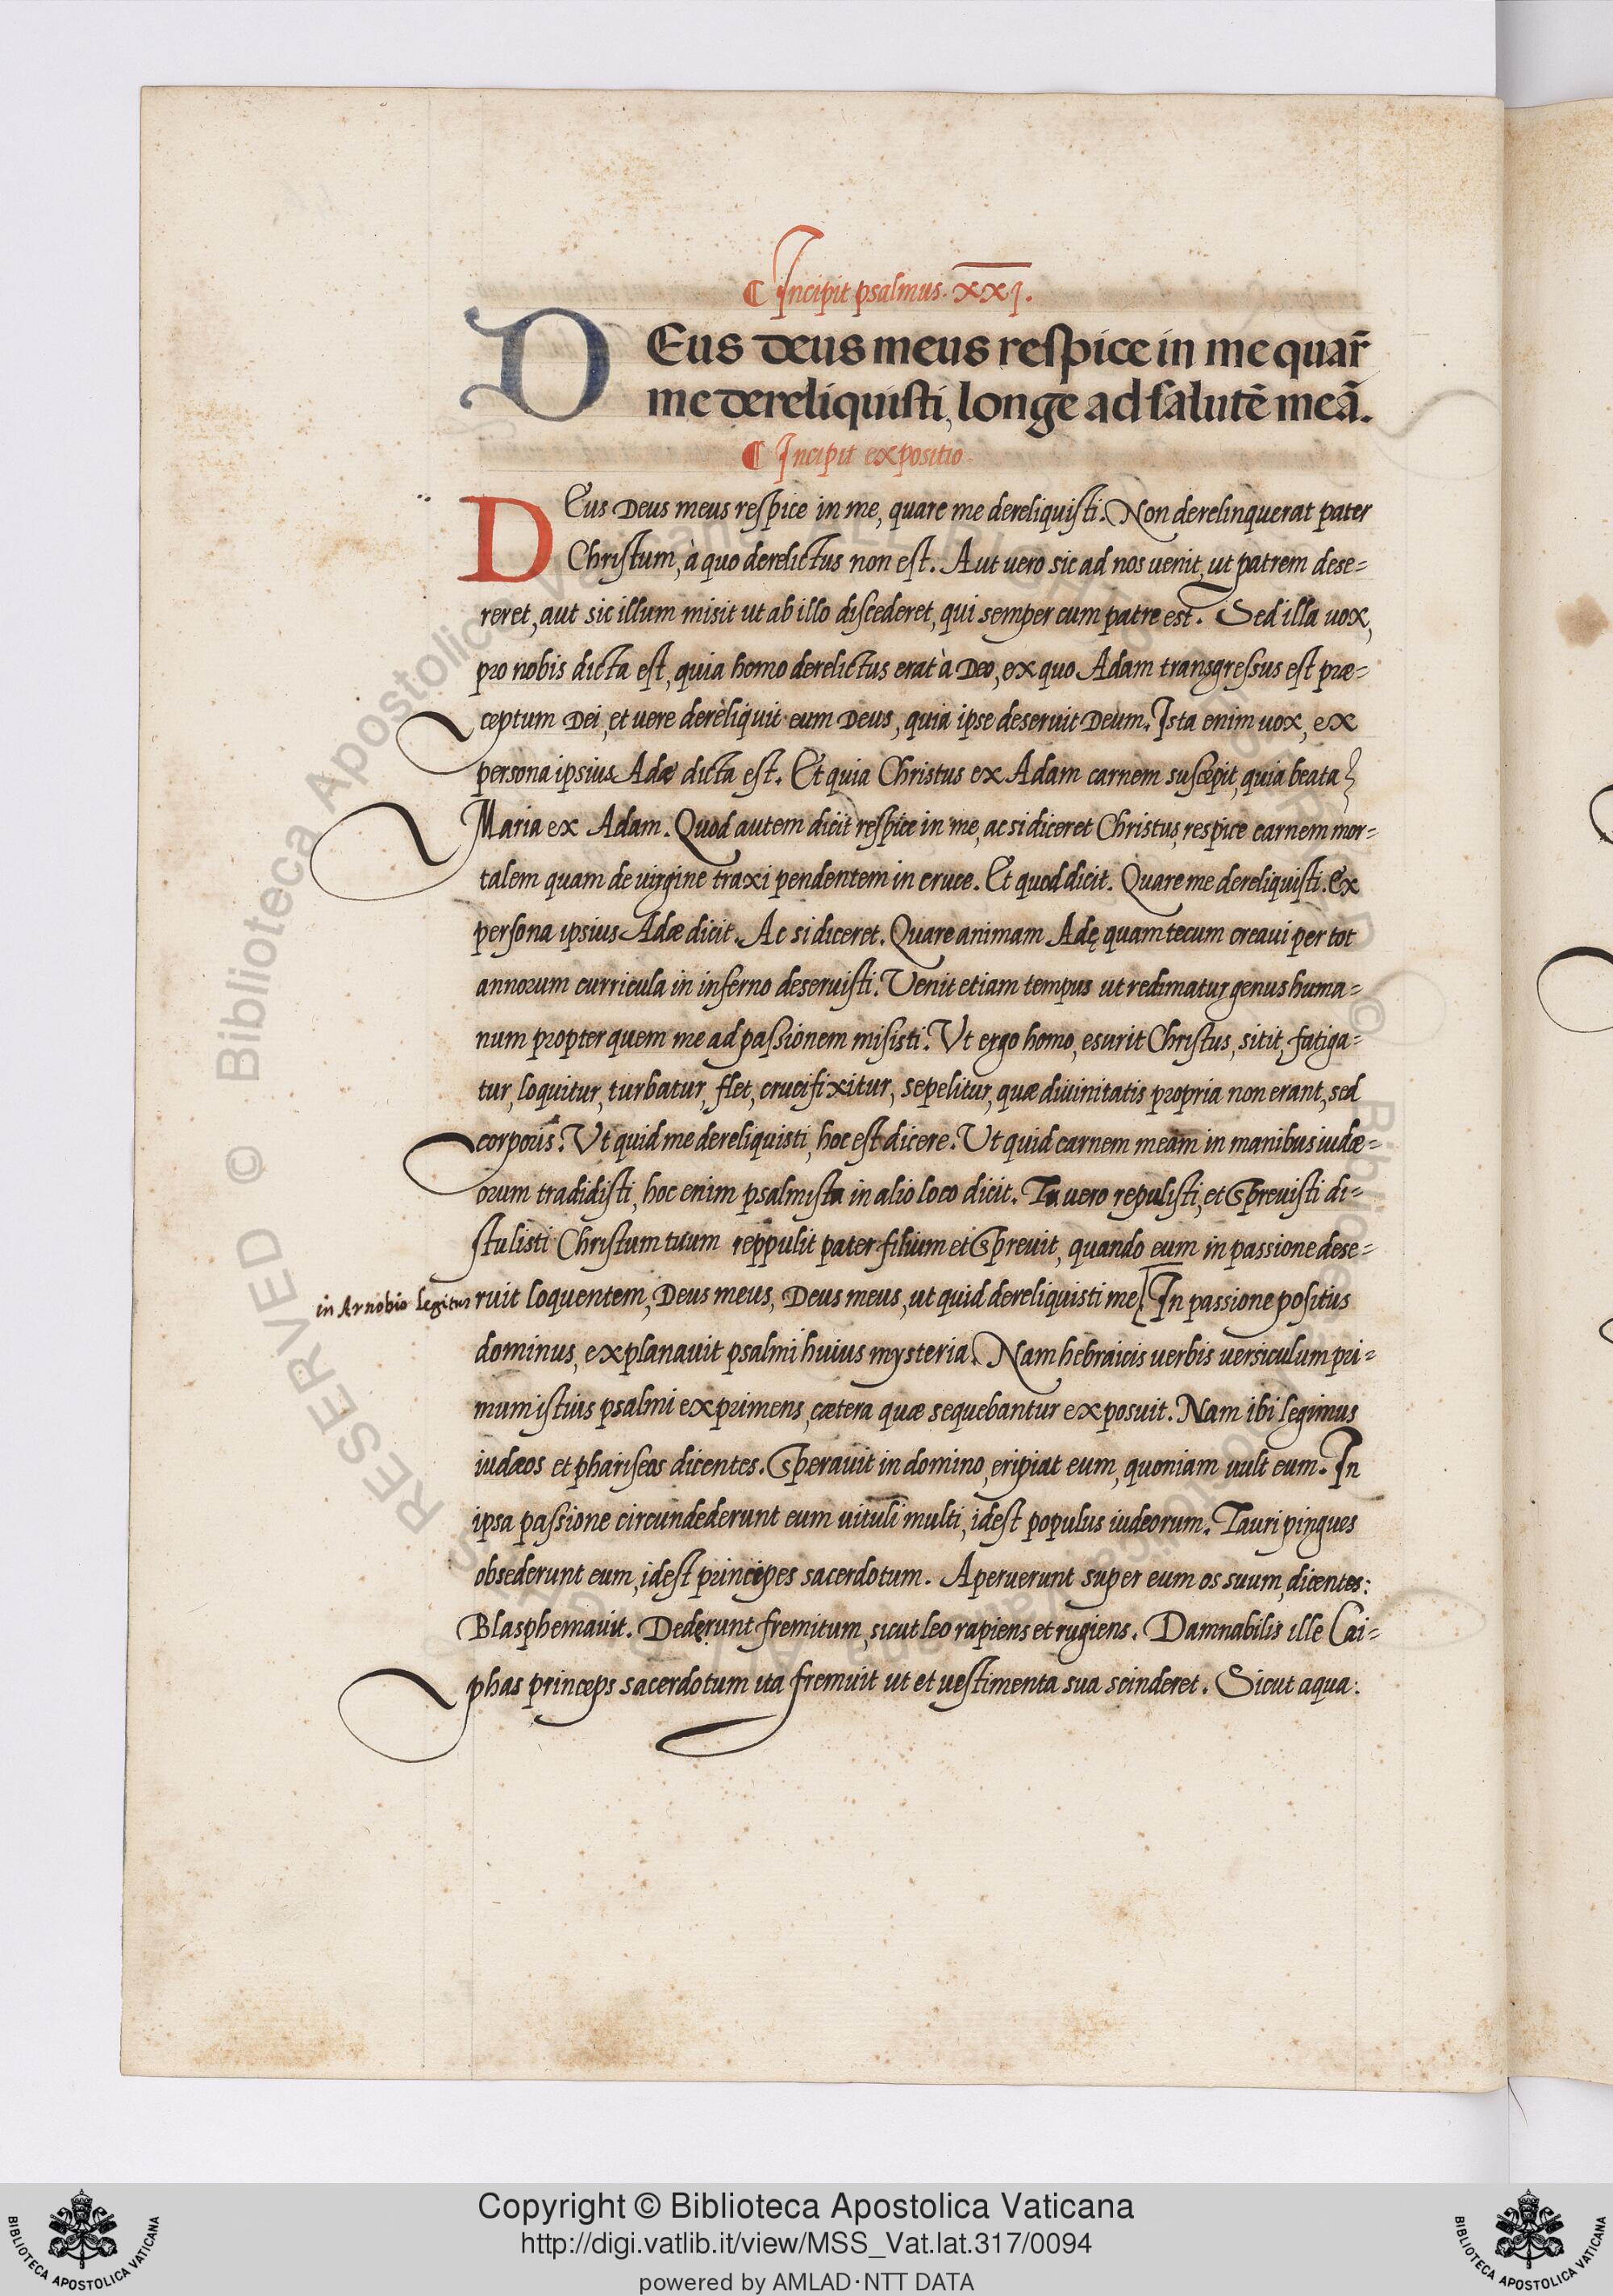 ¶ Incipit psalmus. XXI.
DEus deus meus respice in me quar̃
me dereliquisti, longe ad salutẽ meã.
¶ Incipit expositio.
DEus Deus meus respice in me, quare me dereliquisti. Non derelinquerat pater
Christum, à quo derelictus non est. Aut vero sic ad nos uenit, ut patrem dese-
reret, aut sic illum misit ut ab illo discederet, qui semper cum patre est. Sed illa uox,
pro nobis dicta est, quia homo derelictus erat à Deo, ex quo Adam transgressus est præ-
ceptum Dei, et uere dereliquit eum Deus, quia ipse deseruit Deum. Ista enim uox, ex
persona ipsius Adæ dicta est. Et quia Christus ex Adam carnem suscepit, quia beata
Maria ex Adam. Quod autem dicit respice in me, ac si diceret Christus, respice carnem mor-
talem quam de virgine traxi pendentem in cruce. Et quod dicit. Quare me dereliquisti. Ex
persona ipsius Adæ dicit. Ac si diceret. Quare animam Adę quam tecum creavi per tot
annorum curricula in inferno deseruisti? Venit etiam tempus ut redimatur genus huma-
num propter quem me ad passionem misisti? Vt ergo homo, esurit Christus, sitit, fatiga-
tur, loquitur, turbatur, flet, crucifixitur, sepelitur, quæ divinitatis propria non erant, sed
corporis? Vt quid me dereliquisti, hoc est dicere. Ut quid carnem meam in manibus iudæ-
orum tradidisti, hoc enim psalmista in alio loco dicit. Tu uero repulisti, et sprevisti di-
stulisti Christum tuum reppulit pater filium et sprevit, quando eum in passione dese-
in Arnobio legitur ruit loquentem, Deus meus, Deus meus, ut quid dereliquisti me. [In passione positus
dominus, explanavit psalmi huius mysteria. Nam hebraicis uerbis versiculum pri-
mum istius psalmi exprimens, cætera quæ sequebantur exposuit. Nam ibi legimus
iudæos et phariseos dicentes. Speravit in domino, eripiat eum, quoniam uult eum. In
ipsa passione circundederunt eum uituli multi, idest populus iudeorum. Tauri pingues
obsederunt eum, idest principes sacerdotum. Aperuerunt super eum os suum, dicentes:
Blasphemavit. Dederunt fremitum, sicut leo rapiens et rugiens. Damnabilis ille Cai-
phas princeps sacerdotum ita fremuit ut et uestimenta sua scinderet. Sicut aqua.
RESERVED © Biblioteca Apostolica Vaticana
Copyright © Biblioteca Apostolica Vaticana
http://digi.vatlib.it/view/MSS_Vat.lat.317/0094
powered by AMLAD·NTT DATA
BIBLIOTECA APOSTOLICA VATICANA
BIBLIOTECA APOSTOLICA VATICANA